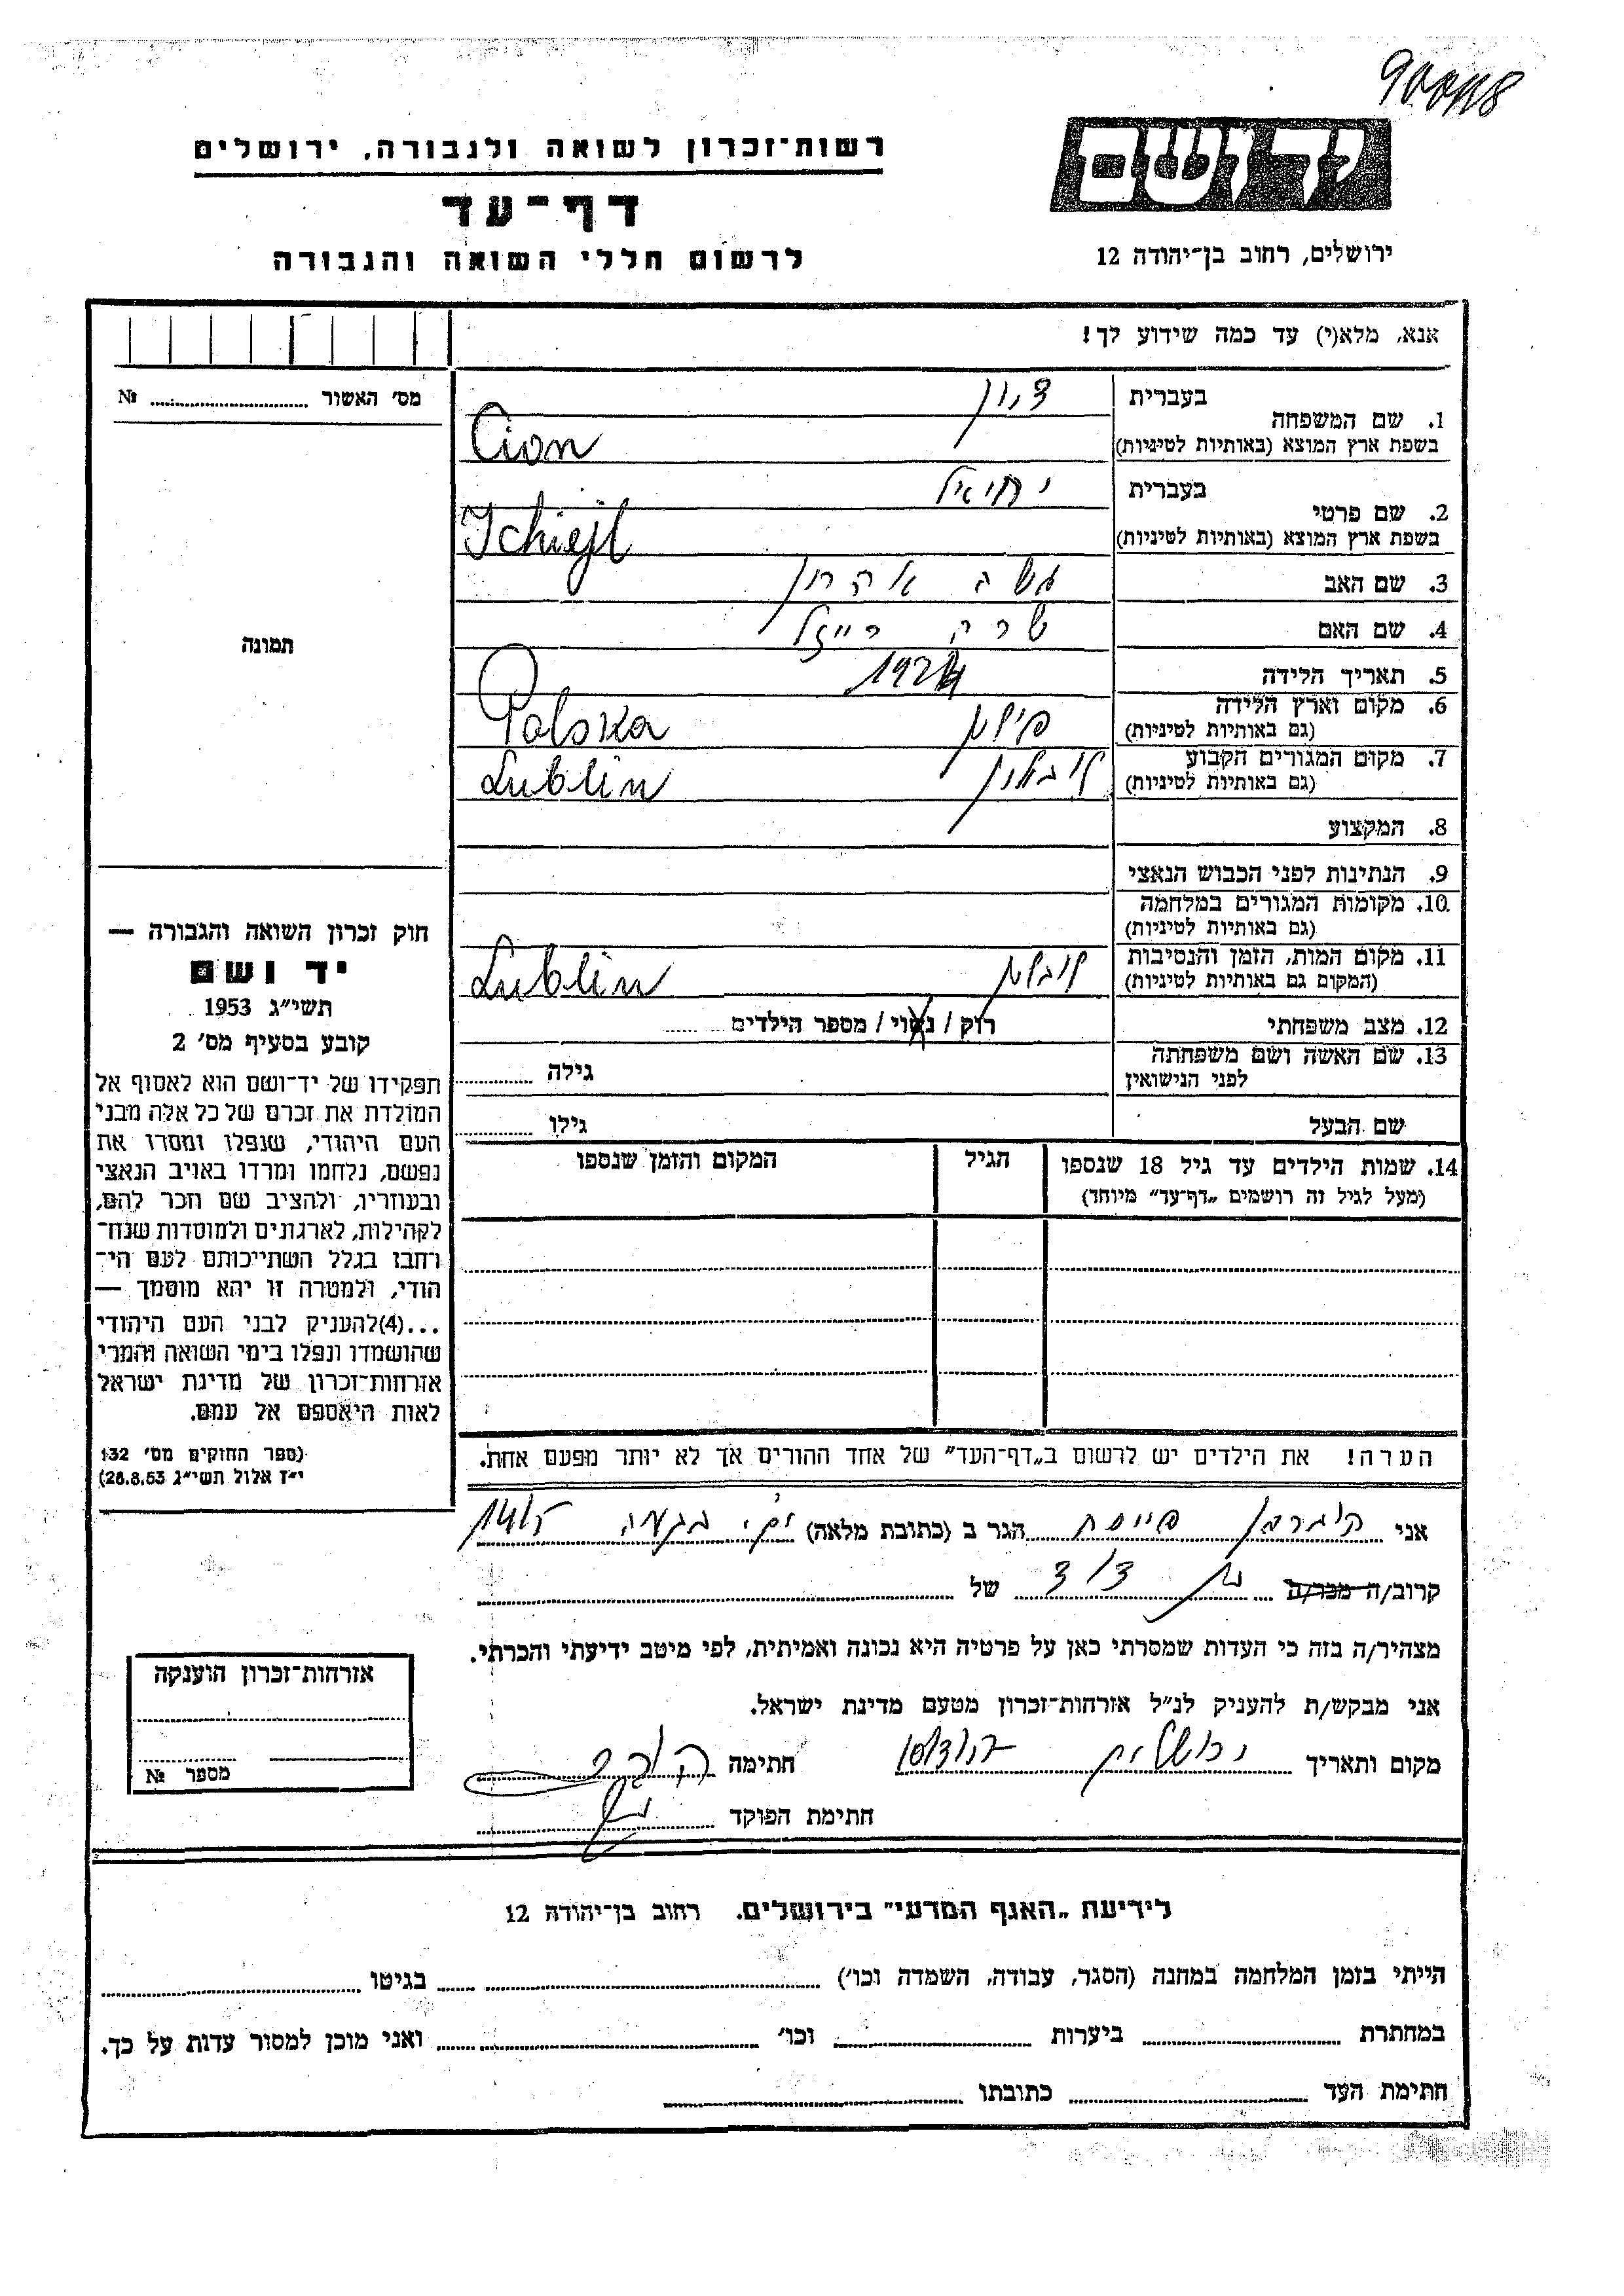 רשות־זכרון לשואה ולגבורה, ירושלים
דף־עד
לרשום חללי השואה והגבורה
יד ושם
ירושלים, רחוב בן־יהודה 12
אנא, מלא(י) עד כמה שידוע לך!
מס׳ האשור № 
תמונה
חוק זכרון השואה והגבורה —
יד ושם
תשי״ג 1953
קובע בסעיף מס׳ 2
תפקידו של יד־ושם הוא לאסוף אל
המולדת את זכרם של כל אלה מבני
העם היהודי, שנפלו ומסרו את
נפשם, נלחמו ומרדו באויב הנאצי
ובעוזריו, ולהציב שם וזכר להם,
לקהילות, לארגונים ולמוסדות שנח־
רבו בגלל השתייכותם לעם הי־
הודי, ולמטרה זו יהא מוסמך —
...(4)להעניק לבני העם היהודי
שהושמדו ונפלו בימי השואה והמרי
אזרחות־זכרון של מדינת ישראל
לאות היאספם אל עמם.
(ספר החוקים מס׳ 132
י״ז אלול תשי״ג 28.8.53)
1. שם המשפחה
בעברית ציון
בשפת ארץ המוצא (באותיות לטיניות) Cion
2. שם פרטי
בעברית יחיאל
בשפת ארץ המוצא (באותיות לטיניות) Ichiejl
3. שם האב אהרון
4. שם האם שרה רייזל
5. תאריך הלידה
6. מקום וארץ הלידה
(גם באותיות לטיניות) פולין Polska
7. מקום המגורים הקבוע
(גם באותיות לטיניות) לובלין Lublin
8. המקצוע
9. הנתינות לפני הכבוש הנאצי
10. מקומות המגורים במלחמה
(גם באותיות לטיניות)
11. מקום המות, הזמן והנסיבות
(המקום גם באותיות לטיניות) לובלין Lublin
12. מצב משפחתי רוק / נשוי / מספר הילדים
13. שם האשה ושם משפחתה
לפני הנישואין גילה
שם הבעל גילו
14. שמות הילדים עד גיל 18 שנספו הגיל המקום והזמן שנספו
(מעל לגיל זה רושמים „דף־עד״ מיוחד)
הערה! את הילדים יש לרשום ב„דף־העד״ של אחד ההורים אך לא יותר מפעם אחת.
אני הגר ב (כתובת מלאה)
קרוב/ה מכר/ה של
מצהיר/ה בזה כי העדות שמסרתי כאן על פרטיה היא נכונה ואמיתית, לפי מיטב ידיעתי והכרתי.
אני מבקש/ת להעניק לנ״ל אזרחות־זכרון מטעם מדינת ישראל.
מקום ותאריך ירושלים חתימה
חתימת הפוקד
אזרחות־זכרון הוענקה
מספר №
לידיעת „האגף המדעי״ בירושלים. רחוב בן־יהודה 12
הייתי בזמן המלחמה במחנה (הסגר, עבודה, השמדה וכו׳) בגיטו
במחתרת ביערות וכו׳ ואני מוכן למסור עדות על כך.
חתימת העד כתובתו